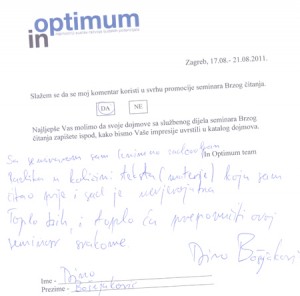 in optimum
Zagreb, 17.08.- 21.08.2011.
Slažem se da se moj komentar koristi u svrhu promocije seminara Brzog čitanja.
DA NE
Najljepše Vas molimo da svoje dojmove sa službenog dijela seminara Brzog
čitanja zapišete ispod, kako bismo Vaše impresije uvrstili u katalog dojmova.
In Optimum team
Sa seminarom sam iznimno zadovoljan
Razlika u količini teksta (materije) koju sam
čitao prije i sad je nevjerojatna
Toplo bih, i toplo ću preporučiti ovaj
seminar svakome.
Dino Božjaković
Ime - Dino
Prezime - Božjaković